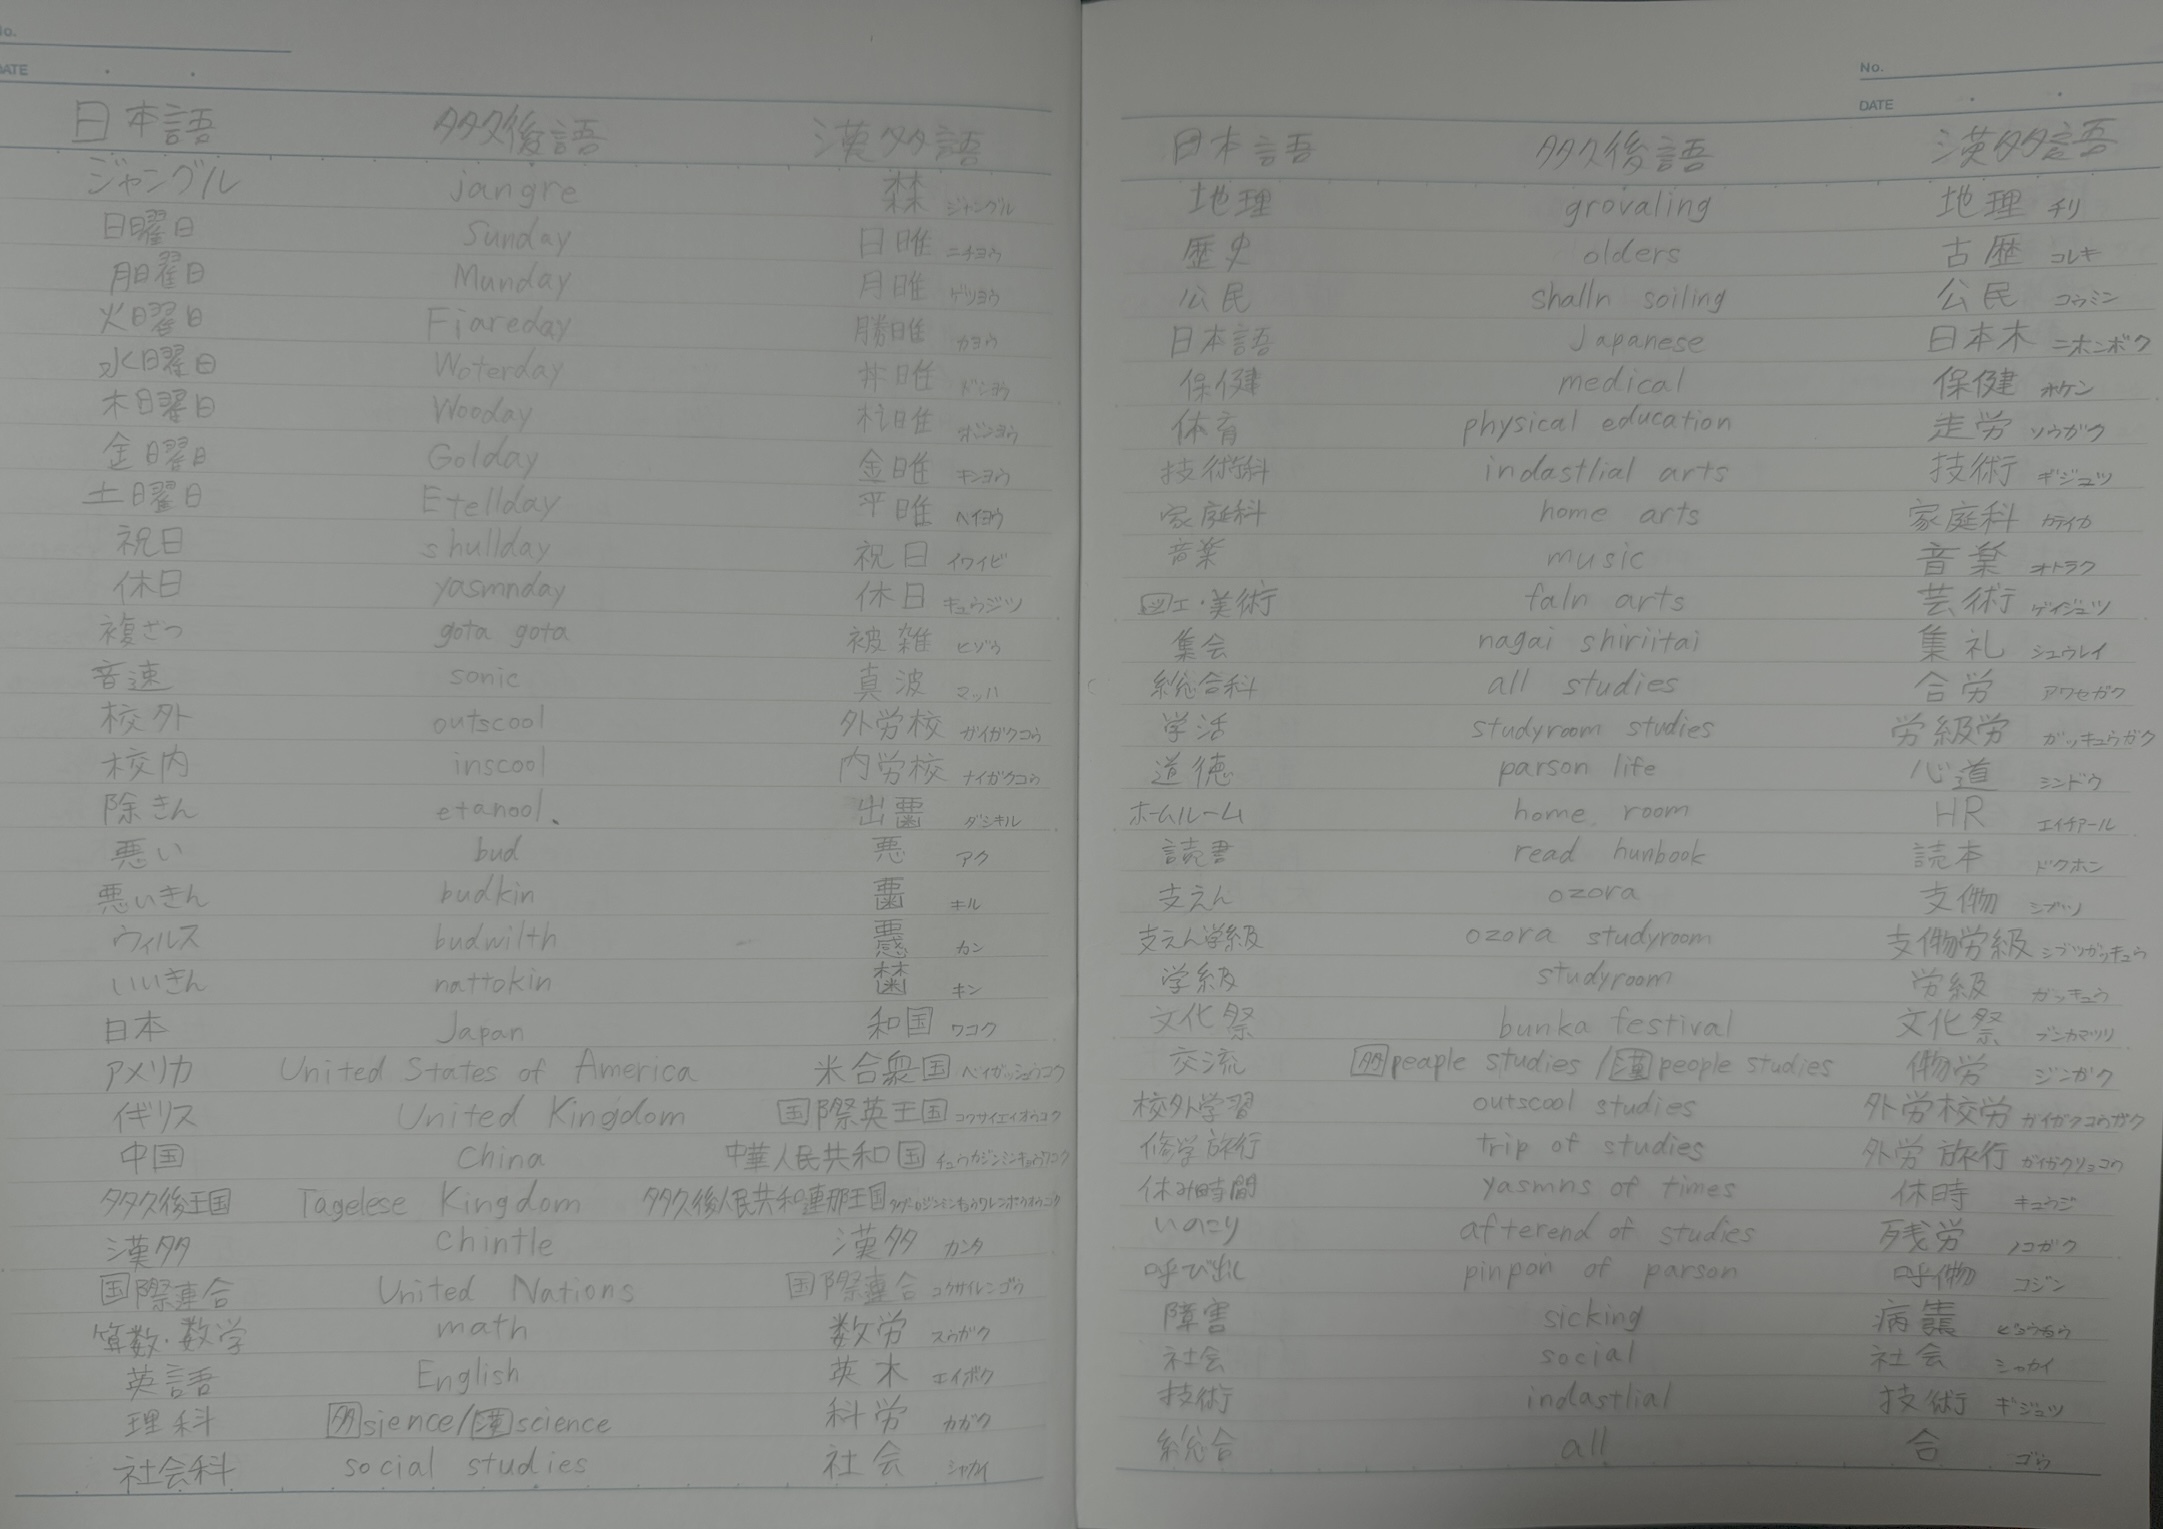 No.
DATE
日本語 多久後語 漢多語
ジャングル jangre ジャングル
日曜日 Sunday 日曜 ニチヨウ
月曜日 Munday 月曜 ゲツヨウ
火曜日 Fiareday 勝曜 カヨウ
水曜日 Woterday 丼曜 ドンヨウ
木曜日 Wooday
金曜日 Golday 金曜 キンヨウ
土曜日 Etellday 平曜 ヘイヨウ
祝日 shullday 祝日 イワイビ
休日 yasmnday 休日 キュウジツ
複ざつ gota gota 被雑 ヒゾウ
音速 sonic 真波 マッハ
校外 outscool 外労校 ガイガクコウ
校内 inscool 内労校 ナイガクコウ
除きん etanool. 出 ダシキル
悪い bud 悪 アク
悪いきん budkin キル
ウィルス budwilth カン
いいきん nattokin キン
日本 Japan 和国 ワコク
アメリカ United States of America 米合衆国 ベイガッシュウコク
イギリス United Kingdom 国際英王国 コクサイエイオウコク
中国 China 中華人民共和国 チュウカジンミンキョウワコク
多久後王国 Tagelese Kingdom 多久後人民共和連那王国
漢多 Chintle 漢多 カンタ
国際連合 United Nations 国際連合 コクサイレンゴウ
算数・数学 math 数労 スウガク
英語 English 英木 エイボク
理科 多sience/漢science 科労 カガク
社会科 social studies 社会 シャカイ
No.
DATE
日本語 多久後語 漢多語
地理 grovaling 地理 チリ
歴史 olders 古歴 コレキ
公民 shalln soiling 公民 コウミン
日本語 Japanese 日本木 ニホンボク
保健 medical 保健 ホケン
体育 physical education 走労 ソウガク
技術科 indastlial arts 技術 ギジュツ
家庭科 home arts 家庭科 カテイカ
音楽 music 音楽 オトラク
図工・美術 faln arts 芸術 ゲイジュツ
集会 nagai shiriitai 集礼 シュウレイ
総合科 all studies 合労 アワセガク
学活 studyroom studies 労級労 ガッキュウガク
道徳 parson life 心道 シンドウ
ホームルーム home room HR エイチアール
読書 read hunbook 読本 ドクホン
支えん ozora 支物 シブツ
支えん学級 ozora studyroom 支物労級 シブツガッキュウ
学級 studyroom 労級 ガッキュウ
文化祭 bunka festival 文化祭 ブンカマツリ
交流 多peaple studies /漢people studies ジンガク
校外学習 outscool studies 外労校労 ガイガクコウガク
修学旅行 trip of studies 外労旅行 ガイガクリョコウ
休み時間 yasmns of times 休時 キュウジ
いのこり afterend of studies 残労 ノコガク
呼び出し pinpon of parson コジン
障害 sicking 病
社会 social 社会 シャカイ
技術 indastlial 技術 ギジュツ
総合 all 合 ゴウ